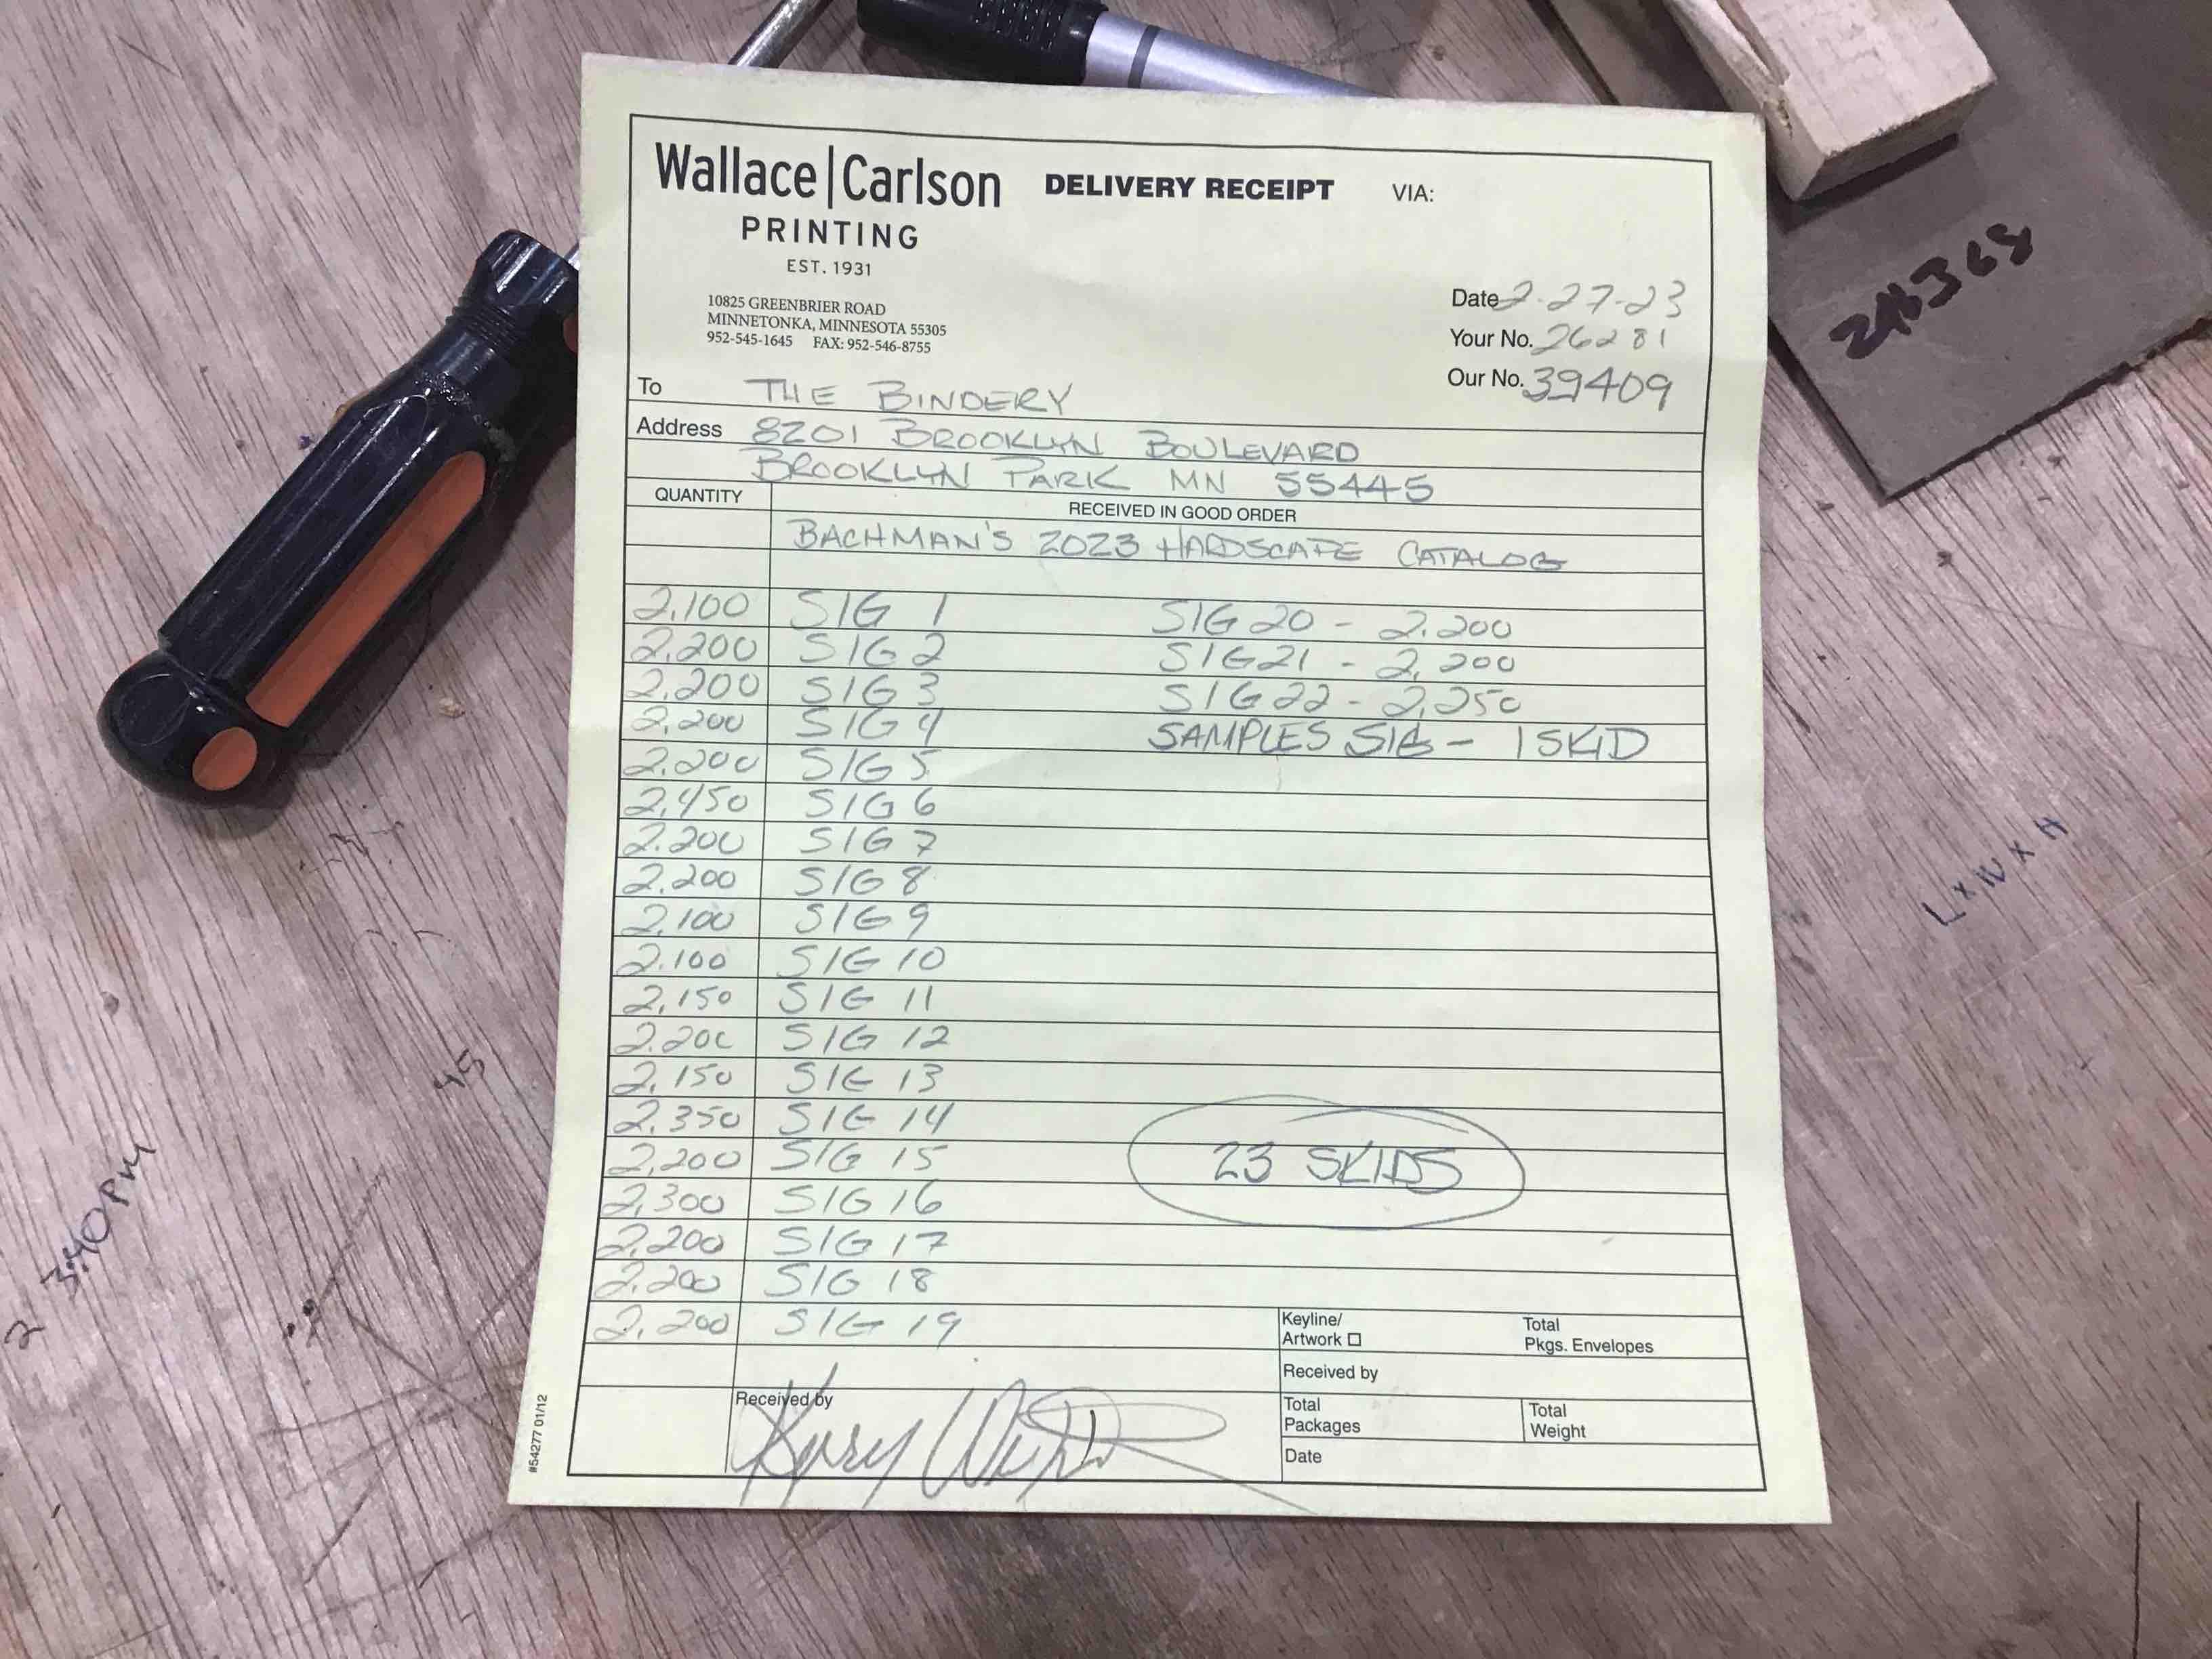 Wallace|Carlson
PRINTING
EST. 1931
10825 GREENBRIER ROAD
MINNETONKA, MINNESOTA 55305
952-545-1645 FAX: 952-546-8755
DELIVERY RECEIPT VIA:
Date 2-27-23
Your No. 26281
Our No. 39409
To THE BINDERY
Address 8201 BROOKLYN BOULEVARD
BROOKLYN PARK MN 55445
QUANTITY RECEIVED IN GOOD ORDER
BACHMAN'S 2023 HARDSCAPE CATALOG
2,100 SIG 1 SIG 20 - 2.200
2,200 SIG 2 SIG 21 - 2,200
2,200 SIG 3 SIG 22 - 2,250
2,200 SIG 4 SAMPLES SIG - 1 SKID
2.200 SIG 5
2,450 SIG 6
2.200 SIG 7
2.200 SIG 8
2,100 SIG 9
2.100 SIG 10
2,150 SIG 11
2.200 SIG 12
2,150 SIG 13
2.350 SIG 14
2,200 SIG 15
23 SKIDS
2,300 SIG 16
2,200 SIG 17
2.200 SIG 18
2,200 SIG 19
Keyline/
Artwork
Total
Pkgs. Envelopes
Received by
Received by
Total
Packages
Total
Weight
Date
#54277 01/12
L x W x H
45
2 3:40 PM